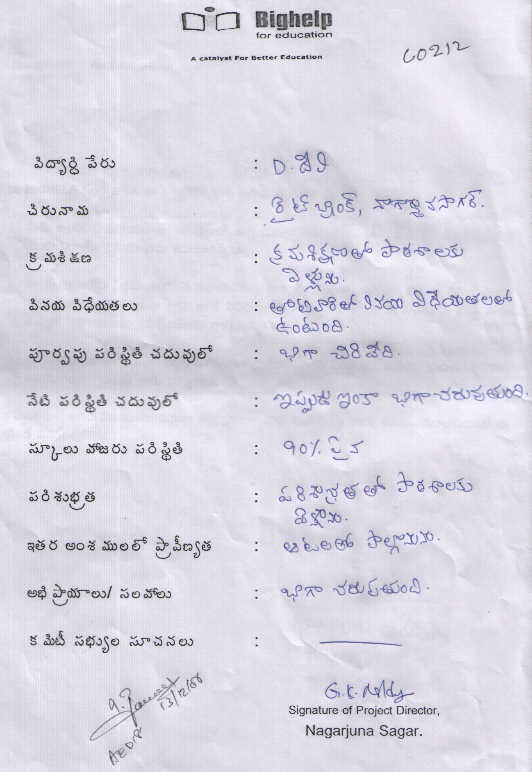 Bighelp
for education
A catalyst For Better Education
C0212
విద్యార్థి పేరు : D. దేవి
చిరునామ : రైట్ బ్యాంక్, నాగార్జునసాగర్.
క్రమశిక్షణ : క్రమశిక్షణతో పాఠశాలకు
వెళ్లును.
వినయ విధేయతలు : తోటివారితో వినయ విధేయతలతో
ఉంటుంది.
పూర్వపు పరిస్థితి చదువులో : బాగా చదివేది.
నేటి పరిస్థితి చదువులో : ఇప్పుడు ఇంకా బాగా చదువుతుంది.
స్కూలు హాజరు పరిస్థితి : 90% పైన
పరిశుభ్రత : పరిశుభ్రతతో పాఠశాలకు
వెళ్లును.
ఇతర అంశములలో ప్రావీణ్యత : ఆటలలో పాల్గొనును.
అభిప్రాయాలు/ సలహాలు : బాగా చదువుతుంది.
కమిటీ సభ్యుల సూచనలు :
13/12/08
G.K. Reddy
Signature of Project Director,
Nagarjuna Sagar.